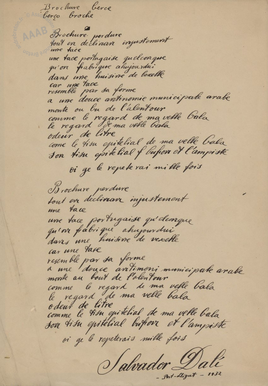 Brochure Berce
Berço Broche
AAAB
Brochure perdure
tout en declinan injustement
une tace
une tace portugaise quelconque
qu'on fabrique ahujourdui
dans une husine de
car une tace
resemble par sa forme
a une douce antinomie municipate arabe
monte au bu de l'alentour
comme le regard de ma velle Gala
le regard de ma velle Gala
odeur de litre
comme le tisu epitelial de ma velle Gala
son tisu epitelial bufon et l'ampiste
oi ge le repeterai mille fois
Brochure perdure
tout en declinan injustement
une tace
une tace portugaise quelconque
qu'on fabrique ahujourdui
dans une husine de
car une tace
resemble par sa forme
a une douce antinomi municipate arabe
monte au bout de l'alentour
comme le regard de ma velle Gala
le regard de ma velle Gala
odeur de litre
comme le tisu epitelial de ma velle Gala
son tisu epitelial bufon et l'ampiste
oi ge le repeterais mille fois
Salvador Dalí